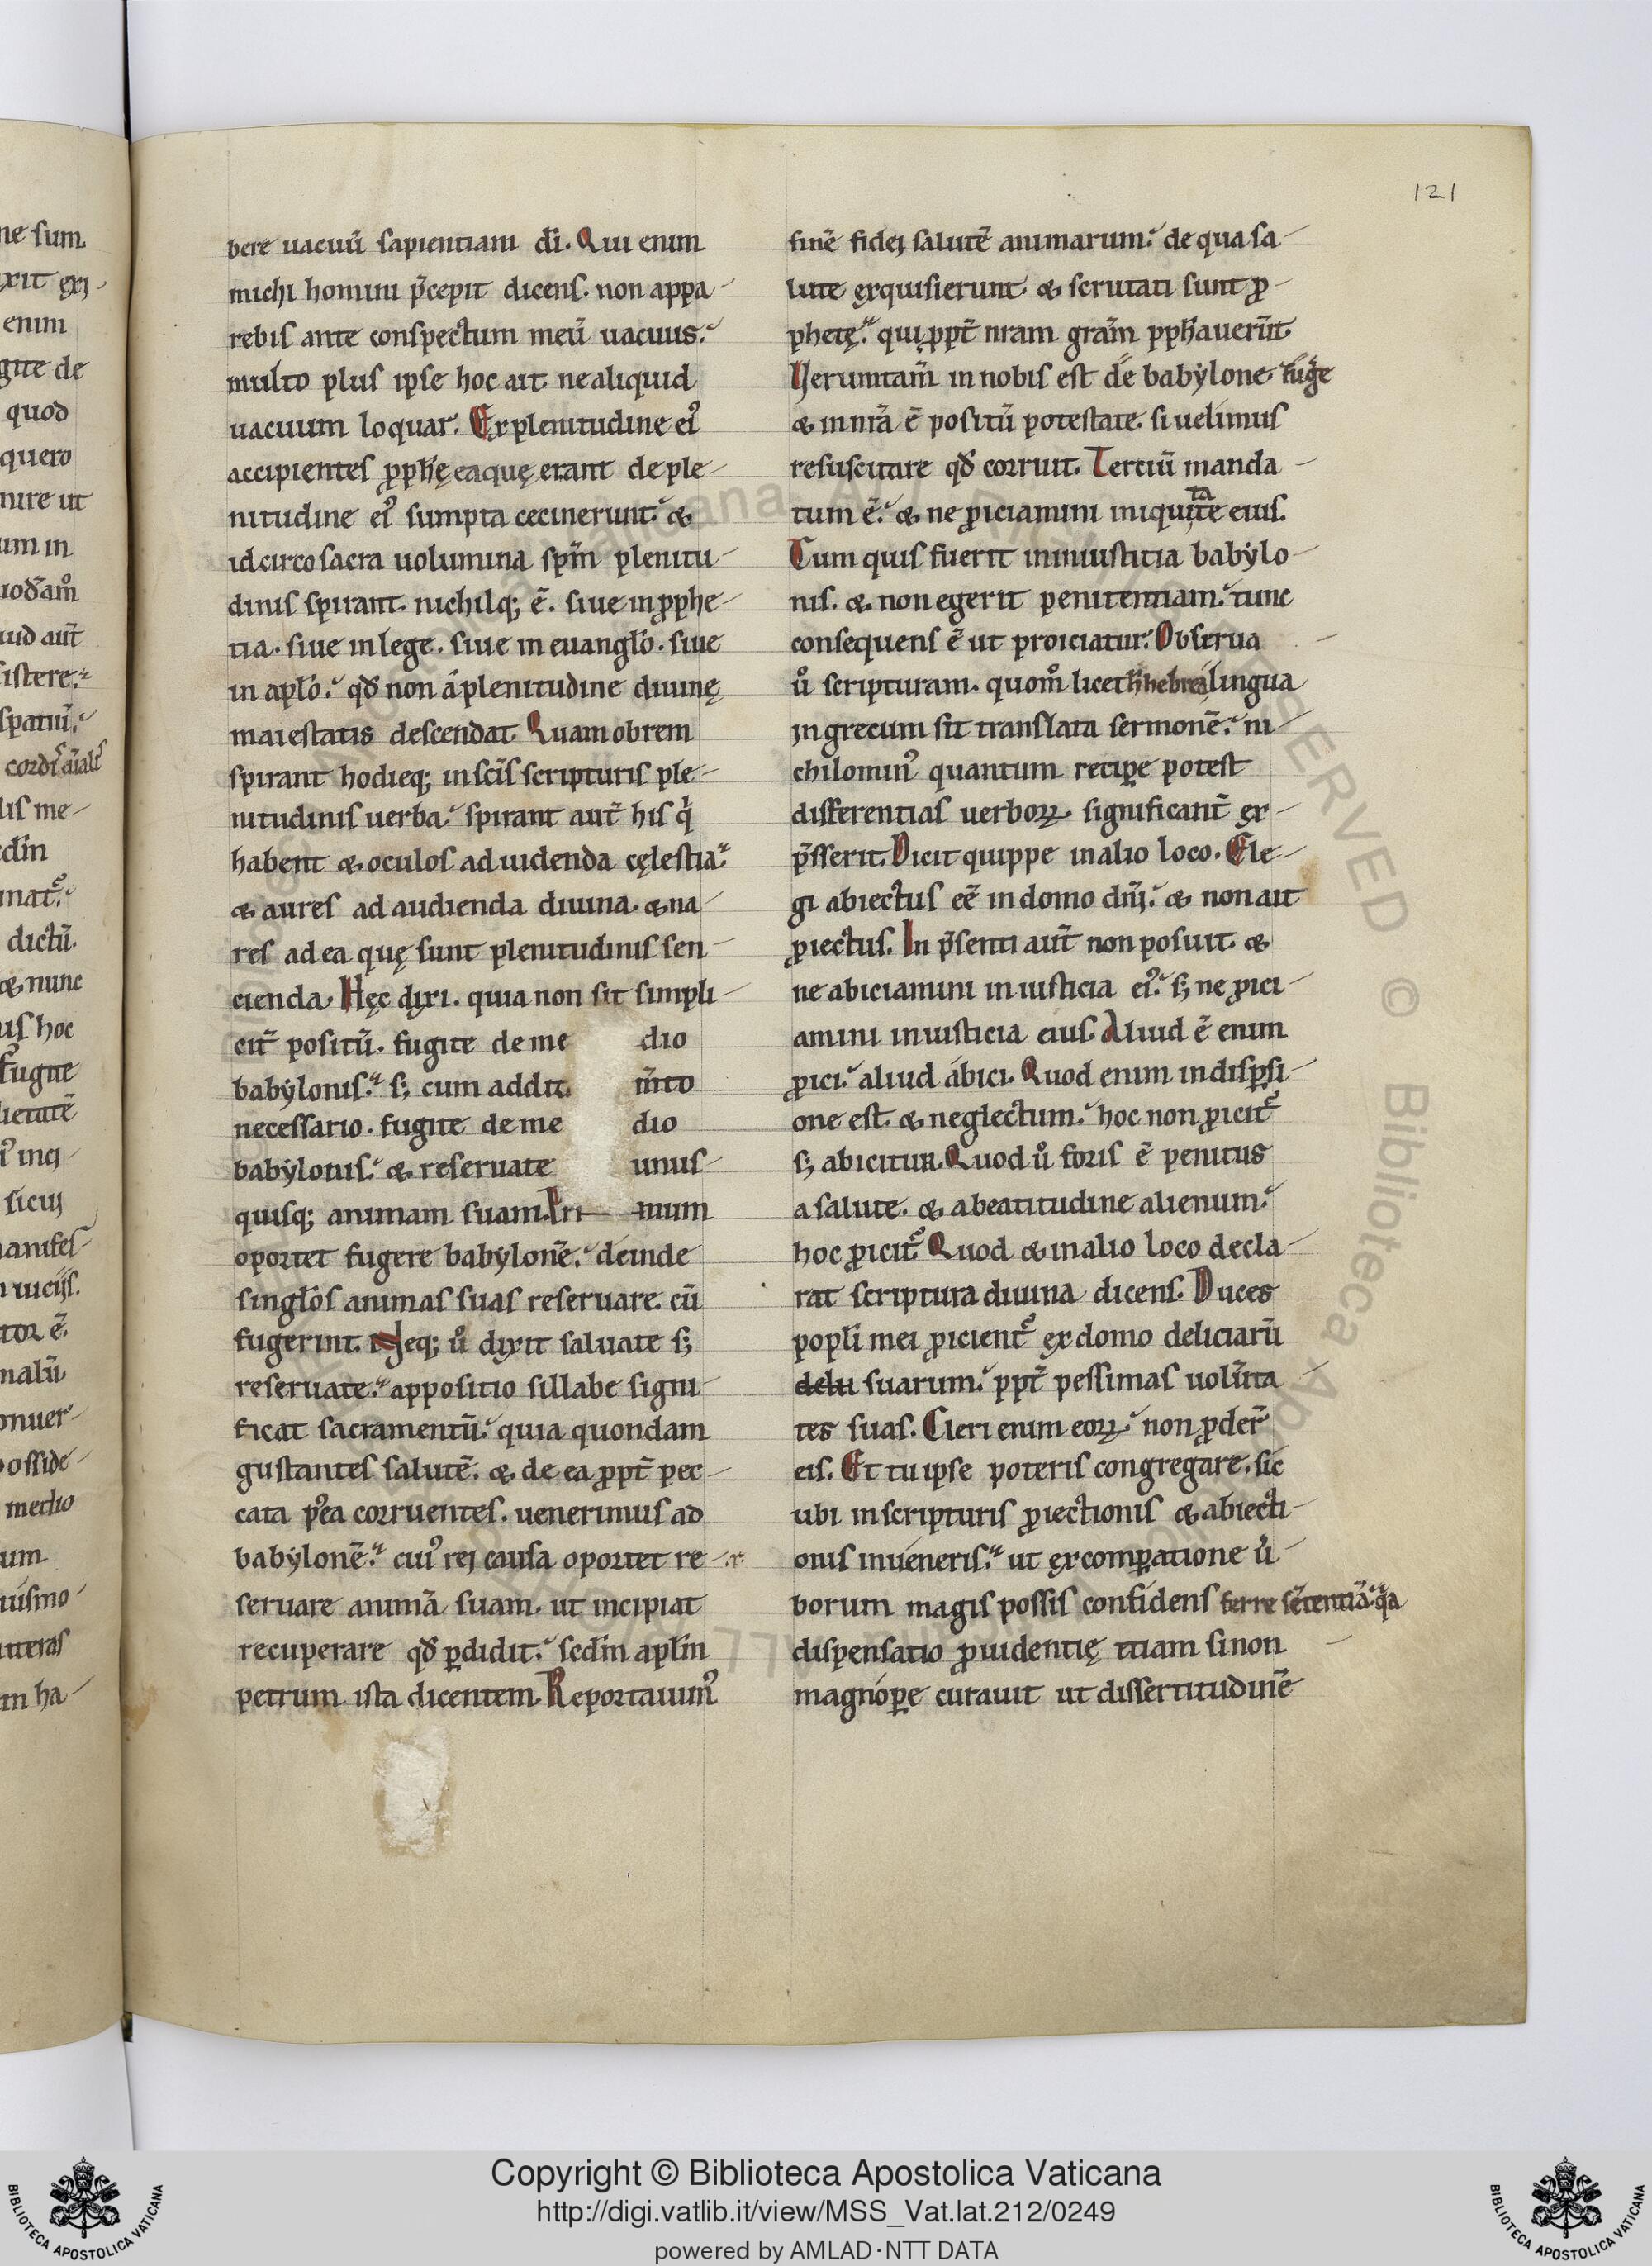 ne sum
xit exi
enim
gite de
quod
quero
nire ut
um in
uod̄am̊
uid aut̄
sistere.
spatiū.
cordıſ aīalıſ
lis me
dīn
nat᷑.
dictū.
& nunc
us hoc
fugite
ietatē
inci
sicuj
manifes
uicijs.
tor ē.
malū
onuer
osside
medio
um
uismo
itteras
m ha
121
bere uacuū sapientiam dī. Qui enim
michi homini p̄cepit dicens. non appa
rebis ante conspectum meū uacuus.
multo plus ipse hoc ait. ne aliquid
uacuum loquar. Ex plenitudine ei᾿
accipientes ꝓphę ea quę erant de ple
nitudine ei᾿ sumpta cecinerunt. &
idcirco sacra uolumina sp̄m plenitu
dinis spirant. nichilq; ē. siue in ꝓphe
tia. siue in lege. siue in euanglo. siue
in aplo. qđ non á plenitudine diuinę
maiestatis descendat. Quam obrem
spirant hodieq; in scīs scripturis ple
nitudinis uerba. spirant aut̄ his q̇
habent & oculos ad uidenda cęlestia.
& aures ad audienda diuina. & na
res ad ea quę sunt plenitudinis sen
cienda. Hęc dixi. quia non sit simpli
cit̄ positū. fugite de me dio
babẏlonis. s; cum addit. m̄to
necessario. fugite de me dio
babẏlonis. & reseruate unus
quisq; animam suam. Pri mum
oportet fugere babẏlonē. deinde
singlos animas suas reseruare. cū
fugerint. Neq; ů dixit saluate s;
reseruate. appositio sillabe signi
ficat sacramentū. quia quondam
gustantes salutē. & de ea ꝓpt̄ pec
cata p᾿ea corruentes. uenerimus ad
babẏlonē. cui᾿ rei causa oportet re
seruare animā suam. ut incipiat
recuperare qđ ꝑdidit. sedin aplm
petrum ista dicentem. Reportauim᾿
finē fidei salutē animarum. de qua sa
lute exquisierunt & scrutati sunt ꝓ
phetę. qui ꝓpt̄ nram gram̄ ꝓph̄auer̄nt
Uerumtam̄ in nobis est de babẏlone fugē
& in nrā ē positū potestate. si uelimus
resuscitare qđ corruit. Terciū manda
tum ē. & ne ꝓiciamini iniquitate eius.
Cum quis fuerit in iniustitia babẏlo
nis. & non egerit penitentiam. tunc
consequens ē ut proiciatur. Obserua
ů scripturam. quom̊ licet h̄ hebrea lingua
in grecum sit translata sermonē. ni
chilomin᾿ quantum reciꝑe potest
differentias uerboꝝ. significant̄ ex
p̄sserit. Dicit quippe in alio loco. Ele
gi abiectus eē in domo dn̄i. & non ait
ꝓiectus. In p̄senti aut̄ non posuit. &
ne abiciamini in iusticia ei᾿. s; ne ꝓici
amini iniusticia eius. Aliud ē enim
ꝓici. aliud ábici. Quod enim in disꝑsi
one est. & neglectum. hoc non ꝓicit᷑
s; abicitur. Quod ů foris ē penitus
a salute. & a beatitudine alienum.
hoc ꝓicit᷑. Quod & in alio loco decla
rat scriptura diuina dicens. Duces
popli mei ꝓicient᷑ ex domo deliciarū
delu suarum. ꝓpt̄ pessimas uolūta
tes suas. Cleri enim eoꝝ. non ꝓder̄
eis. Et tu ipse poteris congregare. sic
ubi in scripturis ꝓiectionis & abiecti
onis inuéneris. ut ex comꝑatione ů
borum magis possis confidens ferre sētentiā. q̄a
dispensatio ꝓuidentię etiam si non
magnoꝑe curauit ut dissertitudinē
Copyright © Biblioteca Apostolica Vaticana
http://digi.vatlib.it/view/MSS_Vat.lat.212/0249
powered by AMLAD·NTT DATA
BIBLIOTECA APOSTOLICA VATICANA
BIBLIOTECA APOSTOLICA VATICANA